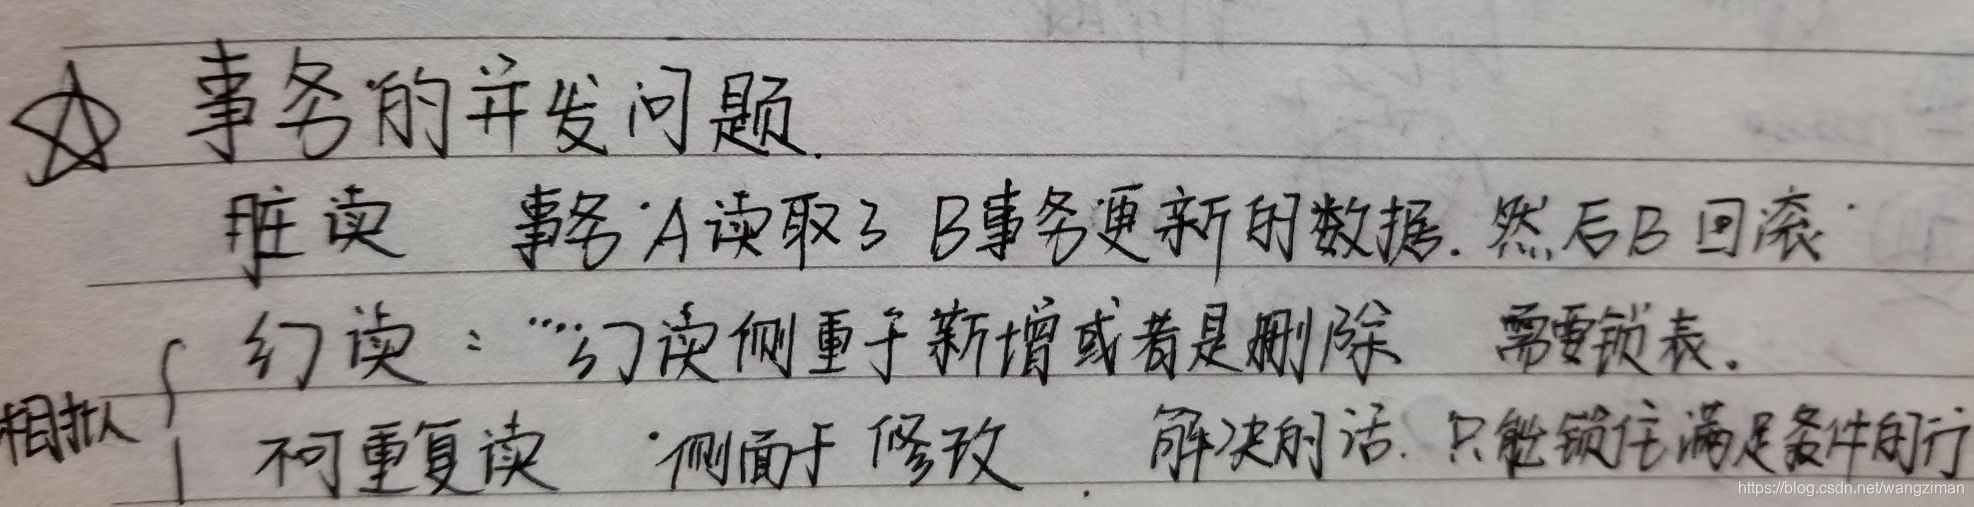 事务的并发问题.
脏读 事务A读取了B事务更新的数据.然后B回滚
幻读: 幻读侧重于新增或者是删除 需要锁表.
相拟
不可重复读 侧面于修改 解决的话.只能锁住满足条件的行
https://blog.csdn.net/wangziman